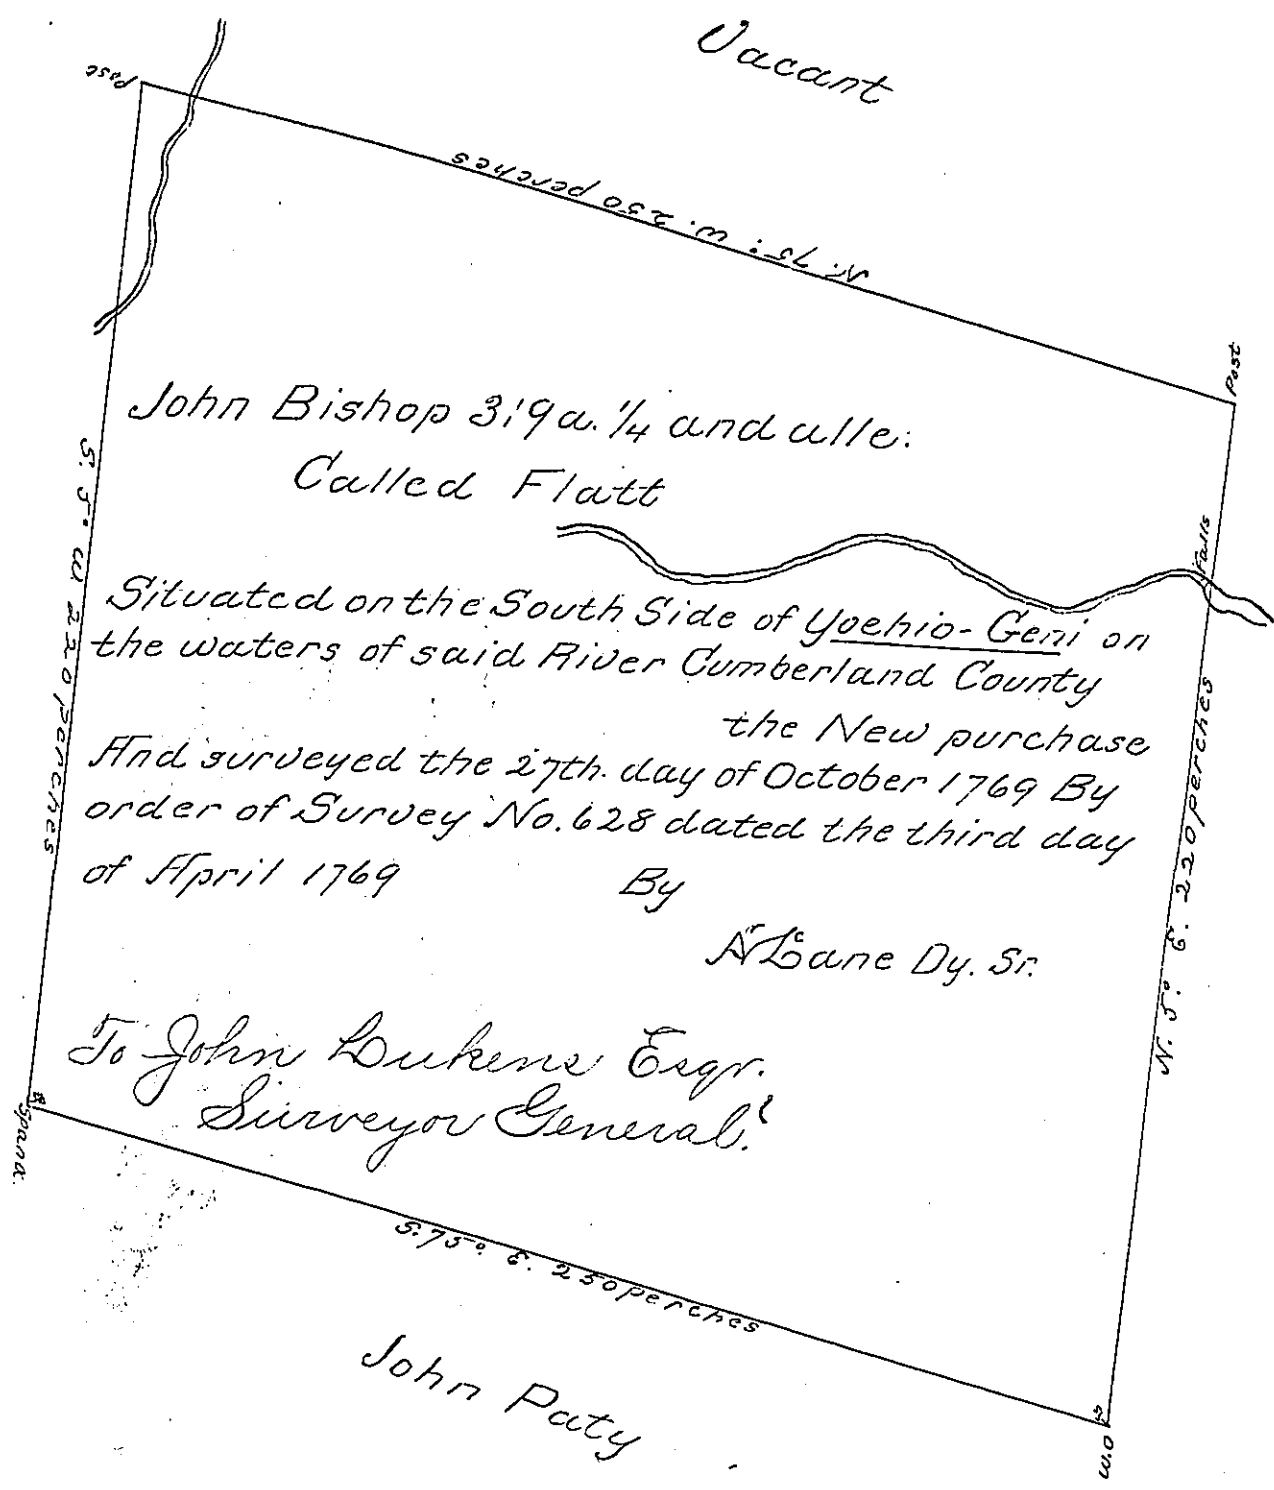 Vacant
Post
N. 75°: W. 250 perches
Post
John Bishop 319 a. 1/4 and alle:
Called Flatt
Falls
S. 5° W 220 perches
Situated on the South Side of Yoehio-Geni on
the waters of said River Cumberland County
the New purchase
And surveyed the 27th. day of October 1769 By
order of Survey No. 628 dated the third day
of April 1769 By
N. 5°. E. 220 perches
McLane Dy. Sr.
To John Lukens Esqr.
Surveyor General.
S. 75°. E. 250 perches
John Paty
W.O